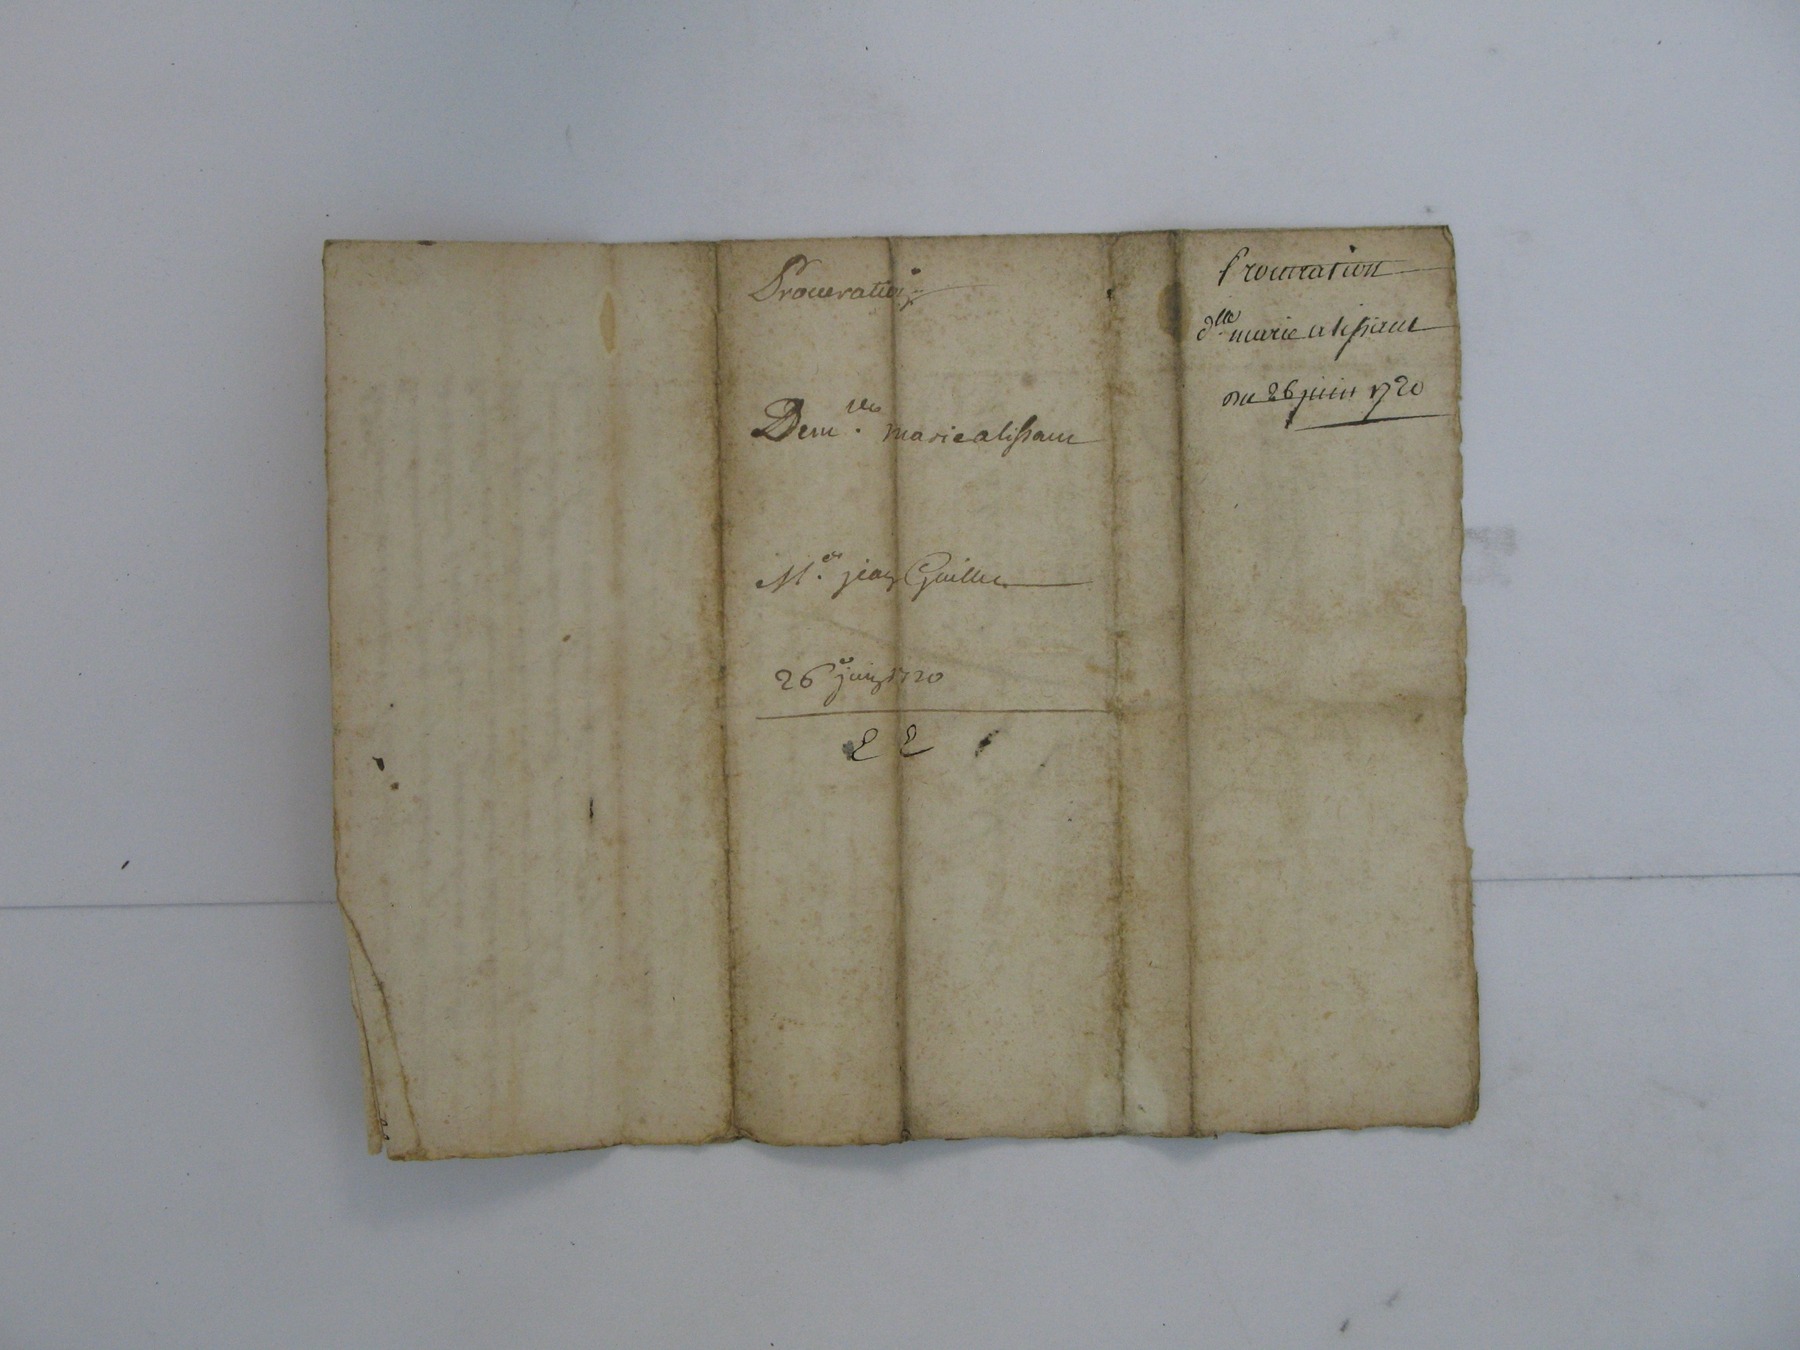 Procuration
Dem.lle marie alissant
M.e jean Guillen
26e juin 1720
Procuration
d.lle marie alissant
du 26 juin 1720